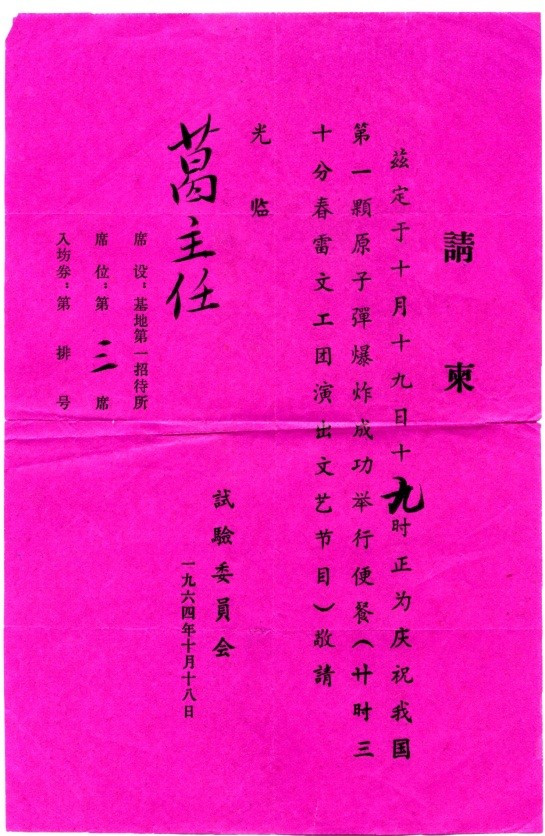 請柬
茲定于十月十九日十九时正为庆祝我国
第一顆原子彈爆炸成功举行便餐（廿时三
十分春雷文工団演出文艺节目）敬請
光临
葛主任
試驗委員会
一九六四年十月十八日
席设：基地第一招待所
席位：第三席
入坊券：第 排 号